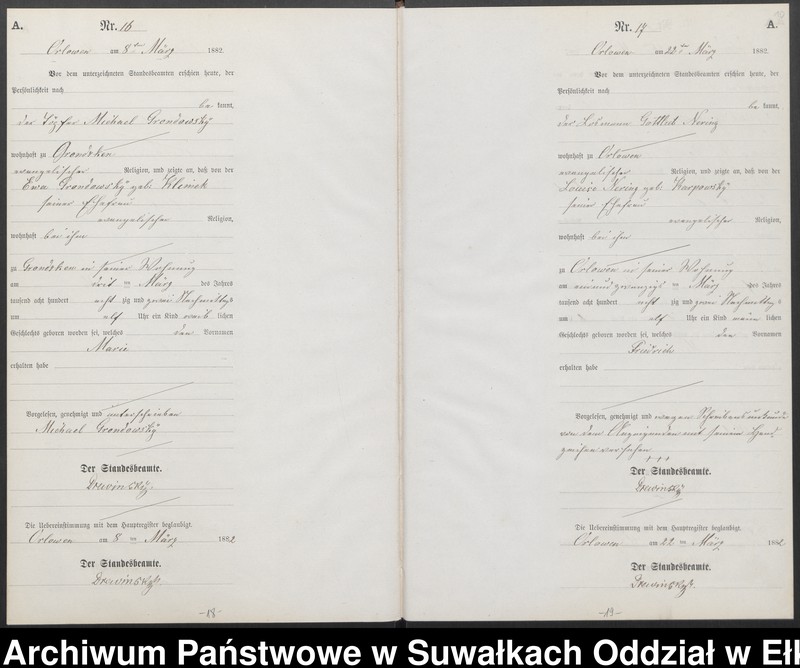 A.
Nr. 16
Orlowen am 8 ten März 1882
Vor dem unterzeichneten Standesbeamten erschien heute, der
Persönlichkeit nach
be kannt,
der Michael Grondowsky
wohnhaft zu Grondzken
evangelischer Religion, und zeigte an, daß von der
Ewa Grondowsky geb.
seiner Ehefrau
evangelischer Religion,
wohnhaft bei ihm
zu Grondzken in seiner Wohnung
am ten März des Jahres
tausend acht hundert acht zig und zwei Nachmittags
um elf Uhr ein Kind weib lichen
Geschlechts geboren worden sei, welches den Vornamen
Marie
erhalten habe
Vorgelesen, genehmigt und unterschrieben
Michael Grondowsky
Der Standesbeamte.
Die Uebereinstimmung mit dem Hauptregister beglaubigt.
Orlowen am 8 ten März 1882
Der Standesbeamte.
-18-
Nr. 17
A.
Orlowen am 22 ten März 1882
Vor dem unterzeichneten Standesbeamten erschien heute, der
Persönlichkeit nach
be kannt,
der Losmann Gottlieb Nering
wohnhaft zu Orlowen
evangelischer Religion, und zeigte an, daß von der
Louise Nering geb. Karpowsky
seiner Ehefrau
evangelischer Religion,
wohnhaft bei ihm
zu Orlowen in seiner Wohnung
am einundzwanzigs ten März des Jahres
tausend acht hundert acht zig und zwei Nachmittags
um elf Uhr ein Kind männ lichen
Geschlechts geboren worden sei, welches den Vornamen
Friedrich
erhalten habe
Vorgelesen, genehmigt und wegen Schreibensunkunde
von dem Anzeigenden mit seinem Hand
zeichen versehen
+++
Der Standesbeamte.
Die Uebereinstimmung mit dem Hauptregister beglaubigt.
Orlowen am 22 ten März 1882
Der Standesbeamte.
-19-
Archiwum Państwowe w Suwałkach Oddział w Eł